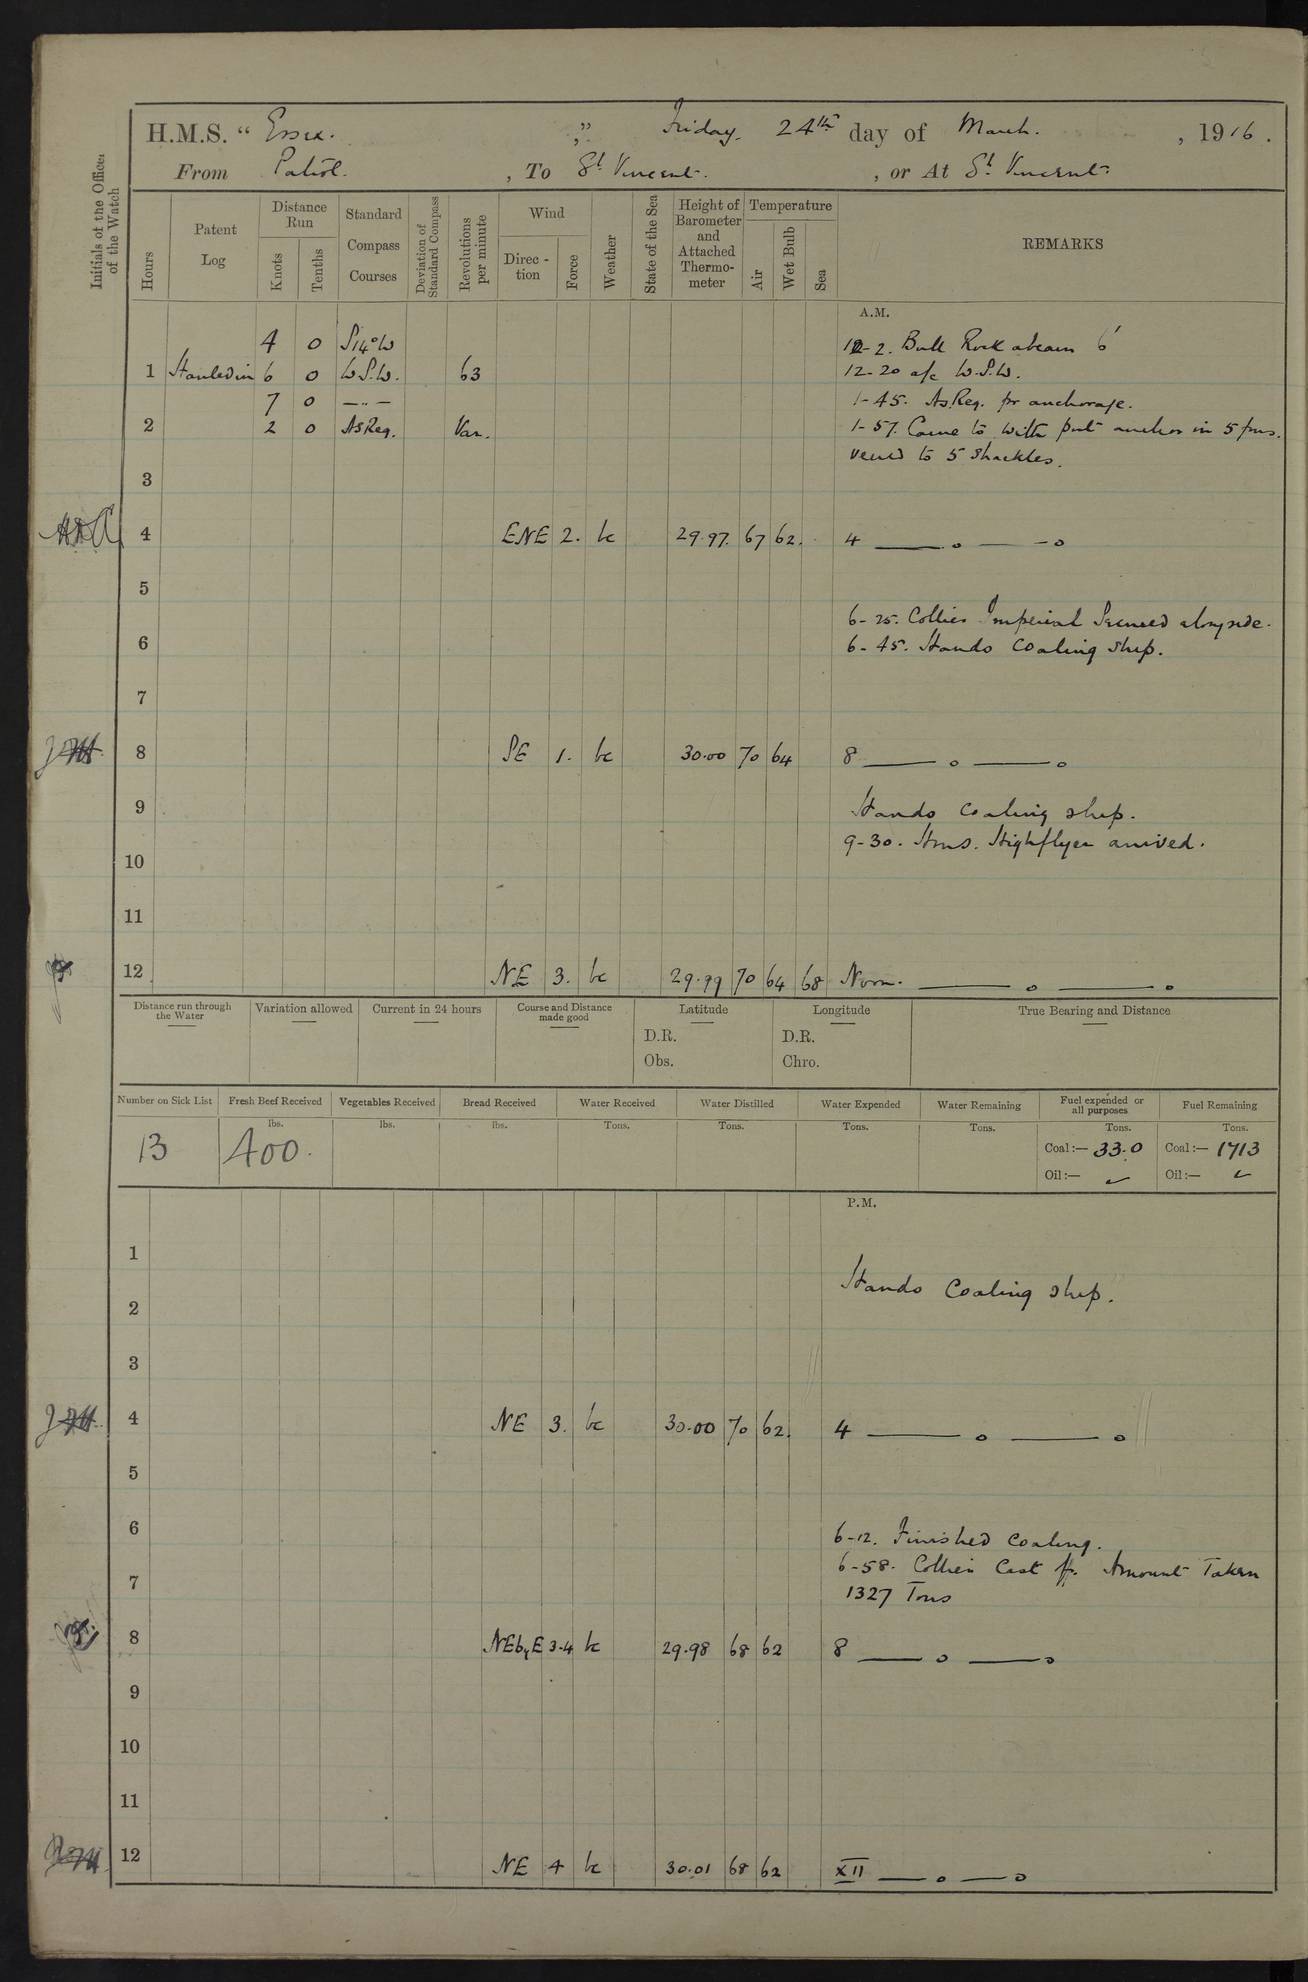 H.M.S. “ Essex. ,” Friday, 24th day of March. , 1916.
From Patrol. , To St Vincent. , or At St Vincent.
Initials of the Officer of the Watch
Hours
Patent Log
Distance Run
Knots
Tenths
Standard Compass Courses
Deviation of Standard Compass
Revolutions per minute
Wind
Direc-tion
Force
Weather
State of the Sea
Height of Barometer and Attached Thermo-meter
Temperature
Air
Wet Bulb
Sea
REMARKS
A.M.
4 0 S14°W 12-2. Bull Rock abeam 6'
1 Hauled in 6 0 W.S.W. 63 12-20 a/c W.S.W.
7 0 —..— 1-45. As Req. for anchorage.
2 2 0 As Req. Var. 1-57. Came to with port anchor in 5 fms.
veered to 5 shackles.
3
4 ENE 2. bc 29.97. 67 62. 4 —— o —— o
5
6-25. Collier Imperial Secured alongside.
6 6-45. Hands coaling ship.
7
8 SE 1. bc 30.00 70 64 8 —— o —— o
9 Hands coaling ship.
9-30. Hms. Highflyer arrived.
10
11
12 NE 3. bc 29.99 70 64 68 Noon. —— o —— o
Distance run through the Water
Variation allowed
Current in 24 hours
Course and Distance made good
Latitude
D.R.
Obs.
Longitude
D.R.
Chro.
True Bearing and Distance
Number on Sick List Fresh Beef Received Vegetables Received Bread Received Water Received Water Distilled Water Expended Water Remaining Fuel expended or all purposes Fuel Remaining
lbs. lbs. lbs. Tons. Tons. Tons. Tons. Tons. Tons.
13 400. Coal:— 33.0 Coal:— 1713
Oil:— ✓ Oil:— ✓
P.M.
1
Hands Coaling ship.
2
3
4 NE 3. bc 30.00 70 62. 4 —— o —— o
5
6 6-12. Finished coaling.
6-58. Collier Cast off. Amount Taken
7 1327 Tons
8 NEbyE 3-4 bc 29.98 68 62 8 —— o —— o
9
10
11
12 NE 4 bc 30.01 68 62 XII —— o —— o